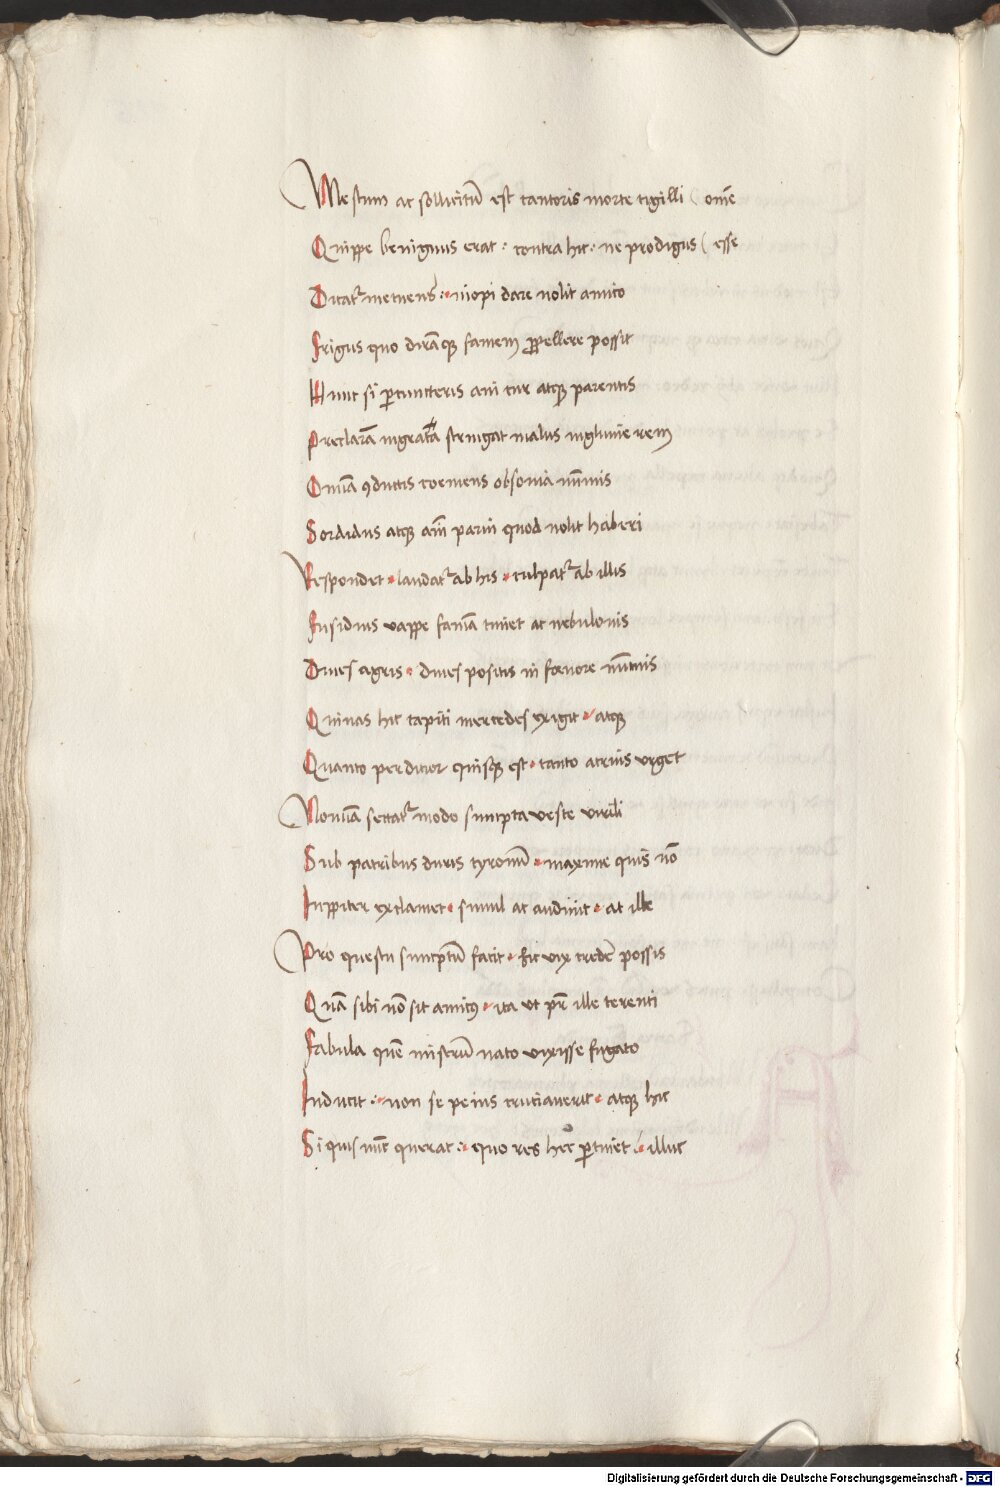 Mestum ac sollicitũ est cantoris morte tigilli ( omẽ
Quippe benignus erat : contra hic : ne prodigus ( esse
Dicat᷑ metuens : inopi dare nolit amico
Frigus quo dirãcꝫ famem ꝓpellere possit
Hunc si ꝑcuncteris aui cur atqꝫ parentis
Preclarã ingratã stringat malus ingluuie rem
Omĩa ꝯductis coemens obsonia nũmis
Sordidus atqꝫ aĩm parui quod nolit haberi
Respondet · laudat᷑ ab his · culpat᷑ ab illis
Fusidius vappe famã timet ac nebulonis
Diues agris · diues positis in fœnore nũmis
Quinas hic capiti mercedes exigit · atqꝫ
Quanto perditior quisqꝫ est · tanto acrius vrget
Nomĩa sectat᷑ modo sumpta veste virili
Sub patribus duris tyronũ · maxime quis nõ
Iuppiter exclamet · simul ac audiuit · at ille
Pro questu sumptũ facit · hic vix credẽ possis
Quã sibi nõ sit amicꝰ · ita vt pr̃ ille terenti
Fabula quẽ miserũ nato vixisse fugato
Inducit : non se peius cruciauerit · atqꝫ hic
Si quis nũc querat : quo res hec ꝑtinet · illuc
Digitalisierung gefördert durch die Deutsche Forschungsgemeinschaft - DFG